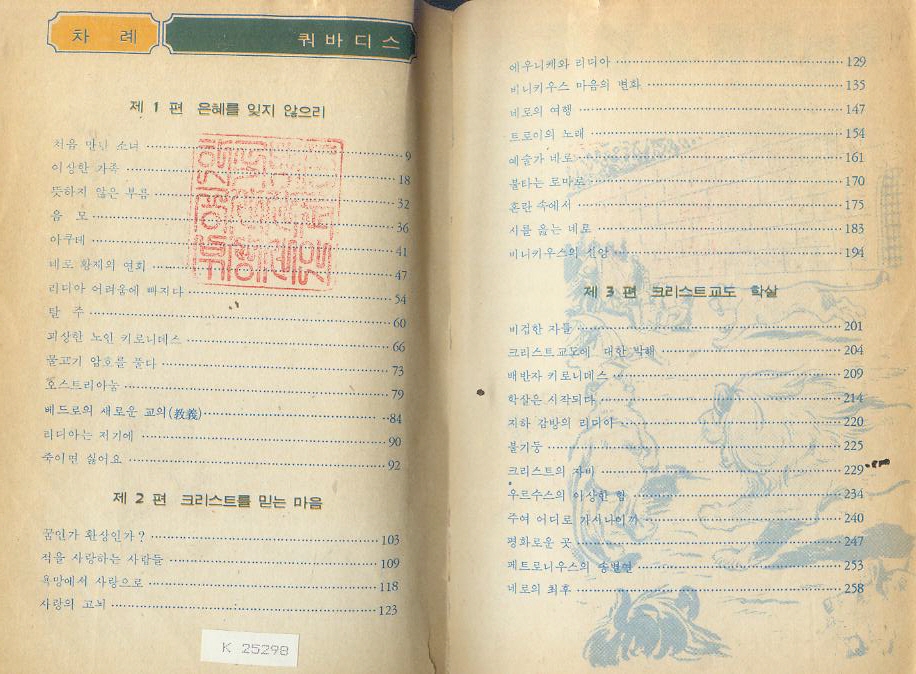 차 례
쿼바디스
제 1 편 은혜를 잊지 않으리
처음 만난 소녀 9
이상한 가족 18
뜻하지 않은 부음 32
음 모 36
아쿠테 41
네로 황제의 연회 47
리디아 어려움에 빠지다 54
탈 주 60
괴상한 노인 키로니데스 66
물고기 암호를 풀다 73
오스트리아눔 79
베드로의 새로운 교의(敎義) 84
리디아는 저기에 90
죽이면 싫어요 92
제 2 편 크리스트를 믿는 마음
꿈인가 환상인가? 103
적을 사랑하는 사람들 109
욕망에서 사랑으로 118
사랑의 고뇌 123
K 25298
에우니케와 리디아 129
비니키우스 마음의 변화 135
네로의 여행 147
트로이의 노래 154
예술가 네로 161
불타는 로마 170
혼란 속에서 175
시를 읊는 네로 183
비니키우스의 신앙 194
제 3 편 크리스트교도 학살
비겁한 자들 201
크리스트교도에 대한 박해 204
배반자 키로니데스 209
학살은 시작되다 214
지하 감방의 리디아 220
불기둥 225
크리스트의 자비 229
우르수스의 이상한 힘 234
주여 어디로 가시나이까 240
평화로운 곳 247
페트로니우스의 송별연 253
네로의 최후 258